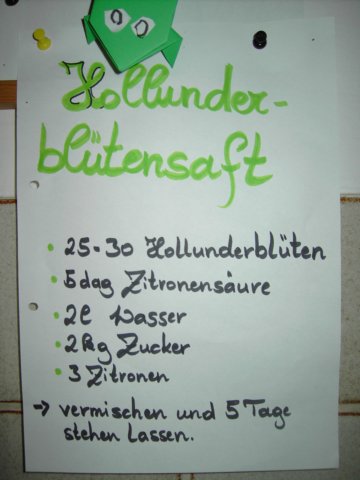 Hollunder-
blütensaft
• 25-30 Hollunderblüten
• 5dag Zitronensäure
• 2l Wasser
• 2kg Zucker
• 3 Zitronen
→ vermischen und 5 Tage
stehen lassen.